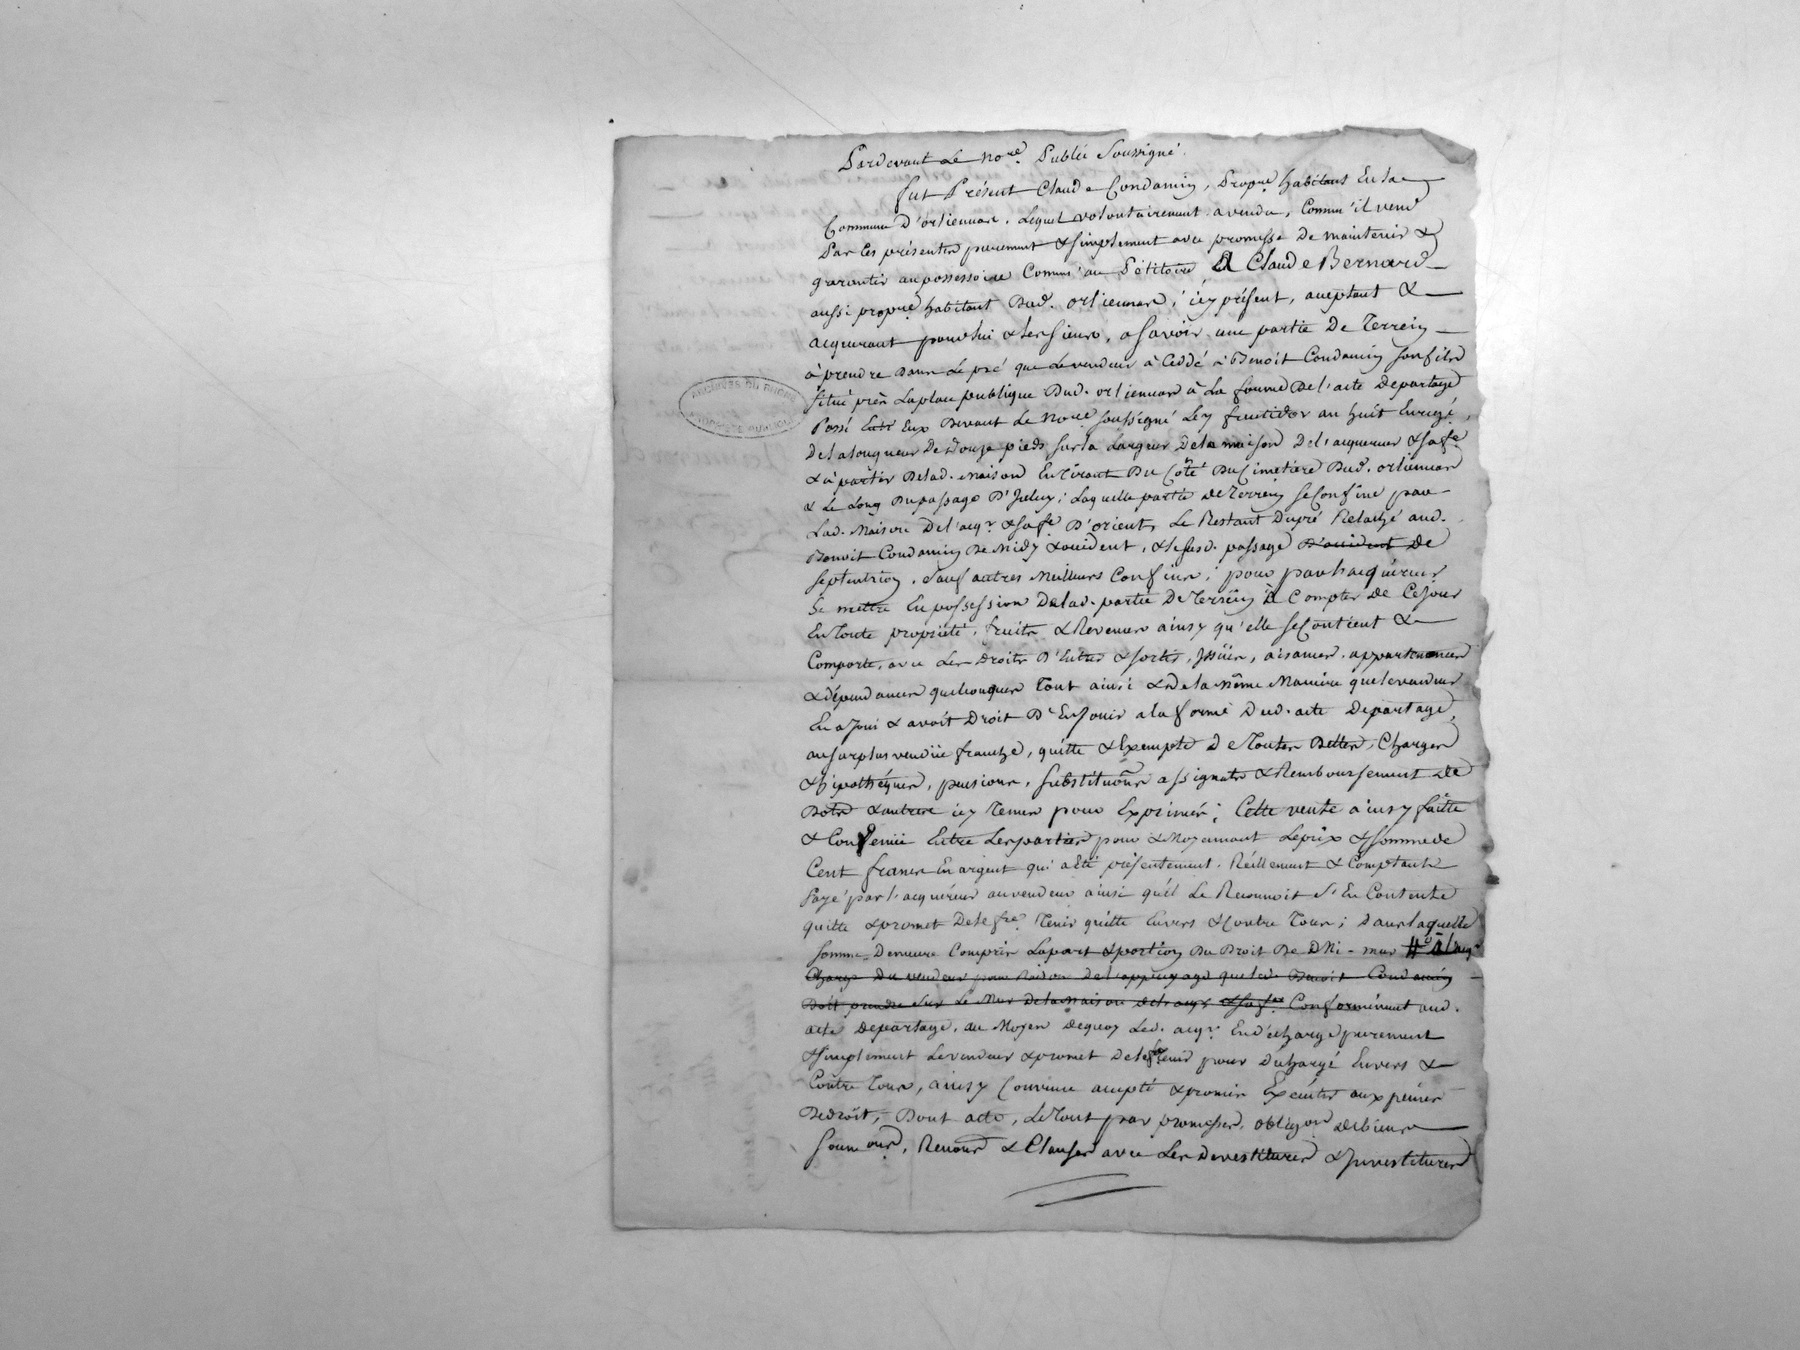 Pardevant Le Nore. Public Soussigné.
fut Présent Claude Condamin, Propre. habitant En la
Commune D'orlienuar, Lequel volontairement a vendu, Comm'il vend
Par Ces présentes purement & simplement avec promesse De maintenir &
garantir au possessoire Comm'au Pétitoire A Claude Bernard
aussi propre. habitant Dud. orlienuar, icy présent, aceptant &
acquerant pour lui & les siens, a savoir une partie De Terrein
à prendre Dans Le pré que Le vendeur à Cédé à Benoit Condamin son fils
situé près La place publique Dud. orlienuar à La forme De l'acte De partage
Passé Entr Eux Devant Le Nore. soussigné Le y fructidor an huit Enregé.
De la longueur De Douze pieds sur la Largeur De la maison De l'acquereur & sa fe.
& à partir De lad. Maison En Tirant Du Côté Du Cimetiere Dud. orlienuar
& Le Long Du passage D'Icelui; Laquelle partie De Terrein se Confine par
Lad. Maison De l'acqr. & sa fe. D'orient, Le Restant Du pré Relaché aud.
Benoit Condamin De Midy & occident, & le susd. passage D'occident De
septentrion, sauf autres Meilleurs Confins; pour par l'acquéreur
Se mettre En possession De lad. partie De Terrein à Compter De Ce jour
En Toute propriété, fruits & Revenus ainsy qu'elle se Contient &
Comporte, avec Les Droits D'Entrée & sortie, Issües, aisances, appartenances
& dépendances quelconques Tout ainsi & De la Même Maniere que le vendeur
En a Joui & avoit Droit D'En Jouir a la forme Dud. acte De partage,
au surplus vendüe franche, quitte & Exempte De Toutes Dettes, Charges
& hipothéques, pensions, substituöns assignats & Remboursement De
Dots & autres icy Tenus pour Exprimés; Cette vente ainsy faitte
& Convenüe Entre Les parties pour & Moyennant Le prix & somme de
Cent francs En argent qui a Eté présentement, Réellement & Comptant
Payé par l'acquéreur au vendeur ainsi qu'il Le Reconnoit s'En Contente
quitte & promet De le fre. Tenir quitte Envers & Contre Tous; Dans laquelle
somme Demeure Compris La part & portion Du Droit De Mi-mur # à l'acqr.
Charge Du vendeur pour Raison De l'appuyage que led. Benoit Condamin
Doit prendre sur Le Mur De la maison De l'acqr. & sa fe. Conformément aud.
acte De partage, au Moyen De quoy Led. acqr. En décharge purement
& simplement Le vendeur & promet De le fre tenir pour Déchargé Envers &
Contre Tous, ainsy Convenu accepté & promis Executer aux peines
De droit, Dont acte, Le Tout par promesses, obligon. De biens
soum ons. Renons & Clauses avec Les Devestitures & Investitures
ARCHIVES DU RHONE
PROPRIETE PUBLIQUE